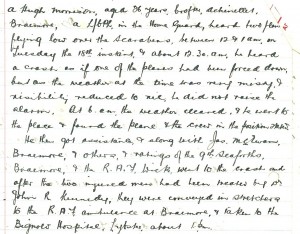 a Hugh Morrison, aged 36 years, crofter,
Braemore, a L/Cpl. in the Home Guard, heard two
flying low over the Scarabens, between 12 & 1 am, on
Tuesday the 18th instant, & about 12.30 am, he heard
a crash as if one of the planes had been forced down,
but as the weather at the time was very misty, &
visibility reduced to nil, he did not raise the
alarm. At 6. am. the weather cleared, & he went to
the place & found the plane & the crew in the position stated.
He then got assistance, & along with Jas. McEwan,
Braemore, & others, & ratings of the 9th Seaforths,
Braemore, & the R.A.F. Wick went to the crash and
after the two injured men had been treated by Dr
John R Kennedy, they were conveyed in stretchers
to the R.A.F. ambulance at Braemore, & taken to the
Bignold Hospital, about 1 pm.